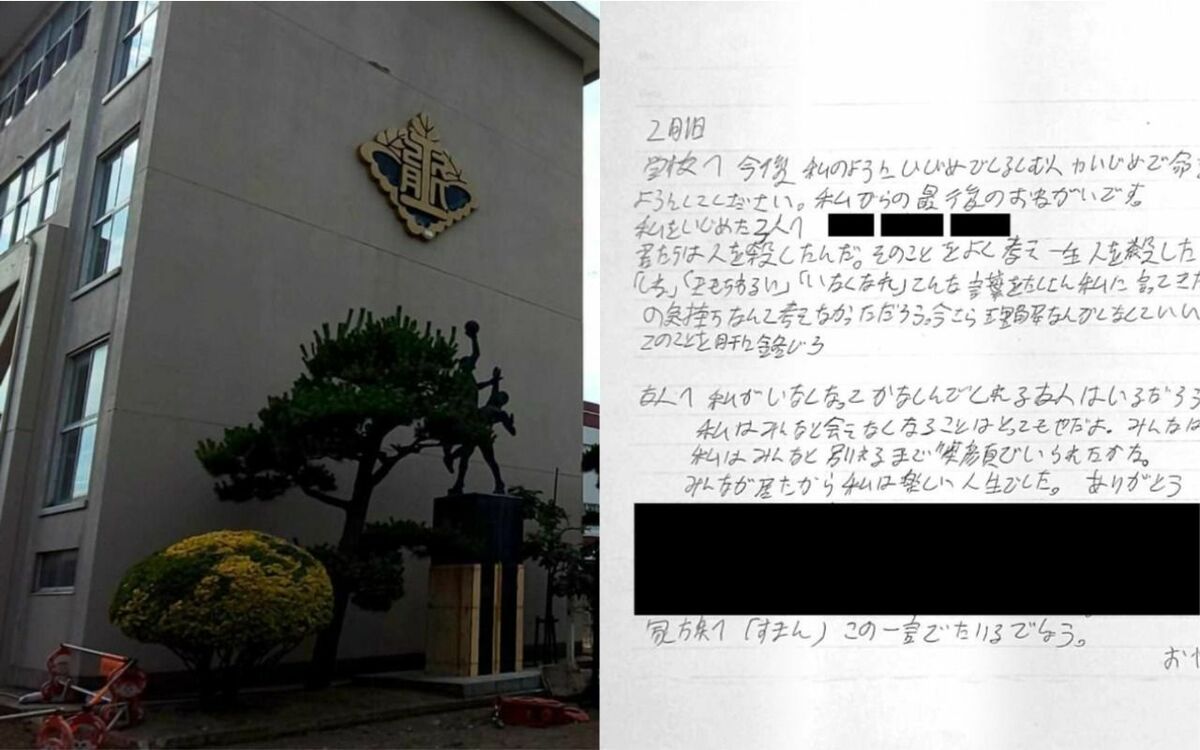 2月1日
学校へ 今後 私のようにいじめでくるしむ人 かいじめで命
ようにしてください。私からの最後のおねがいです。
私をいじめた2人へ
君たちは人を殺したんだ。そのことをよく考え一生人を殺した
「しね」「きもちわるい」「いなくなれ」こんな言葉をたくさん私に言ってきた
の気持ちなんて考えなかっただろう。今さら理解なんかしなくていい
このことを肝に銘じろ
友人へ 私がいなくなってかなしんでくれる友人はいるだろう
私はみんなと会えなくなることはとってもやだよ。みんなは
私はみんなと別れるまで笑顔でいられたかな。
みんなが居たから私は楽しい人生でした。 ありがとう
家族へ「すまん」この一言でたりるでしょう。